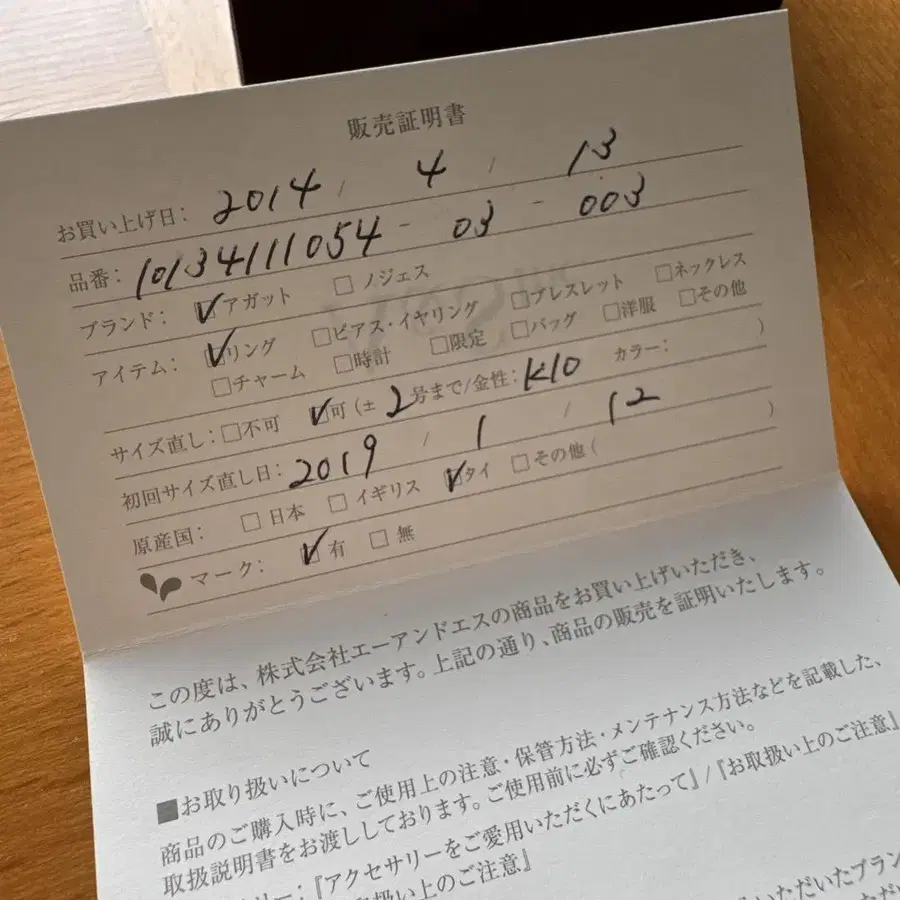 販売証明書
お買い上げ日: 2014 / 4 / 13
品番: 10134111054 - 03 - 003
ブランド: ☑アガット □ノジェス
アイテム: ☑リング □ピアス・イヤリング □ブレスレット □ネックレス
□チャーム □時計 □限定 □バッグ □洋服 □その他
サイズ直し: □不可 ☑可 (± 2号まで/金性: K10 カラー: )
初回サイズ直し日: 2019 / 1 / 12
原産国: □日本 □イギリス ☑タイ □その他 ( )
マーク: ☑有 □無
この度は、株式会社エーアンドエスの商品をお買い上げいただき、
誠にありがとうございます。上記の通り、商品の販売を証明いたします。
■お取り扱いについて
商品のご購入時に、ご使用上の注意・保管方法・メンテナンス方法などを記載した、
取扱説明書をお渡ししております。ご使用前に必ずご確認ください。
リー:『アクセサリーをご愛用いただくにあたって』/『お取扱い上のご注意』
取扱い上のご注意』
いただいたブラン